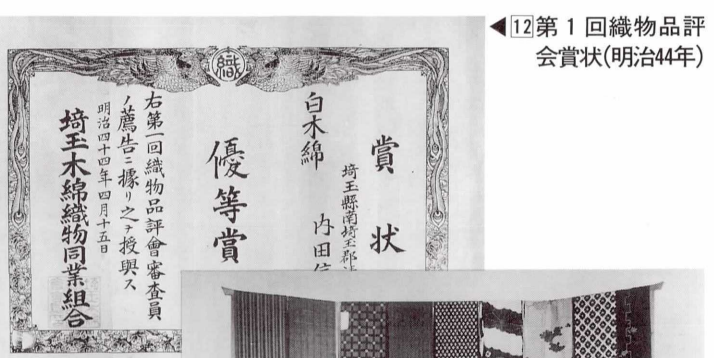 ◀12第1回織物品評
会賞状(明治44年)
織
賞状
埼玉縣南埼玉郡
白木綿
内田
優等賞
右第一回織物品評會審査員
ノ薦告ニ據リ之ヲ授與ス
明治四十四年四月十五日
埼玉木綿織物同業組合